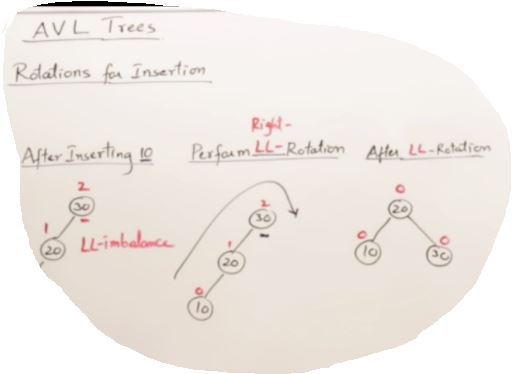 AVL Trees
Rotations for Insertion
Right-
After Inserting 10 Perform LL-Rotation After LL-Rotation
2 2 0
30 30 20
1 LL-imbalance 1 0 0
20 20 10 30
0
10